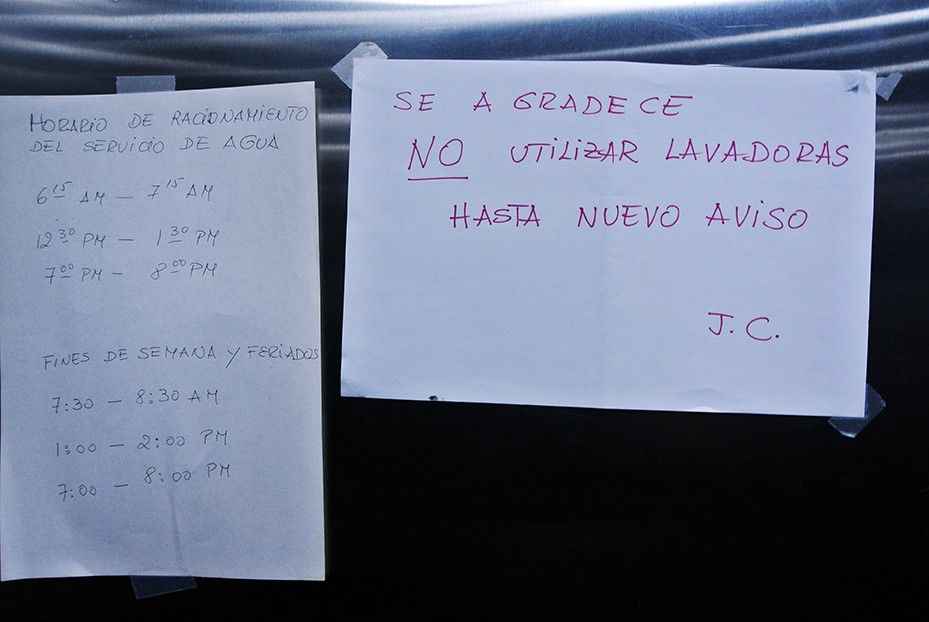 HORARIO DE RACIONAMIENTO
DEL SERVICIO DE AGUA
6 15 AM — 7 15 AM
12 30 PM — 1 30 PM
7 00 PM — 8 00 PM
FINES DE SEMANA Y FERIADOS
7:30 — 8:30 AM
1:00 — 2:00 PM
7:00 — 8:00 PM
SE AGRADECE
NO UTILIZAR LAVADORAS
HASTA NUEVO AVISO
J.C.